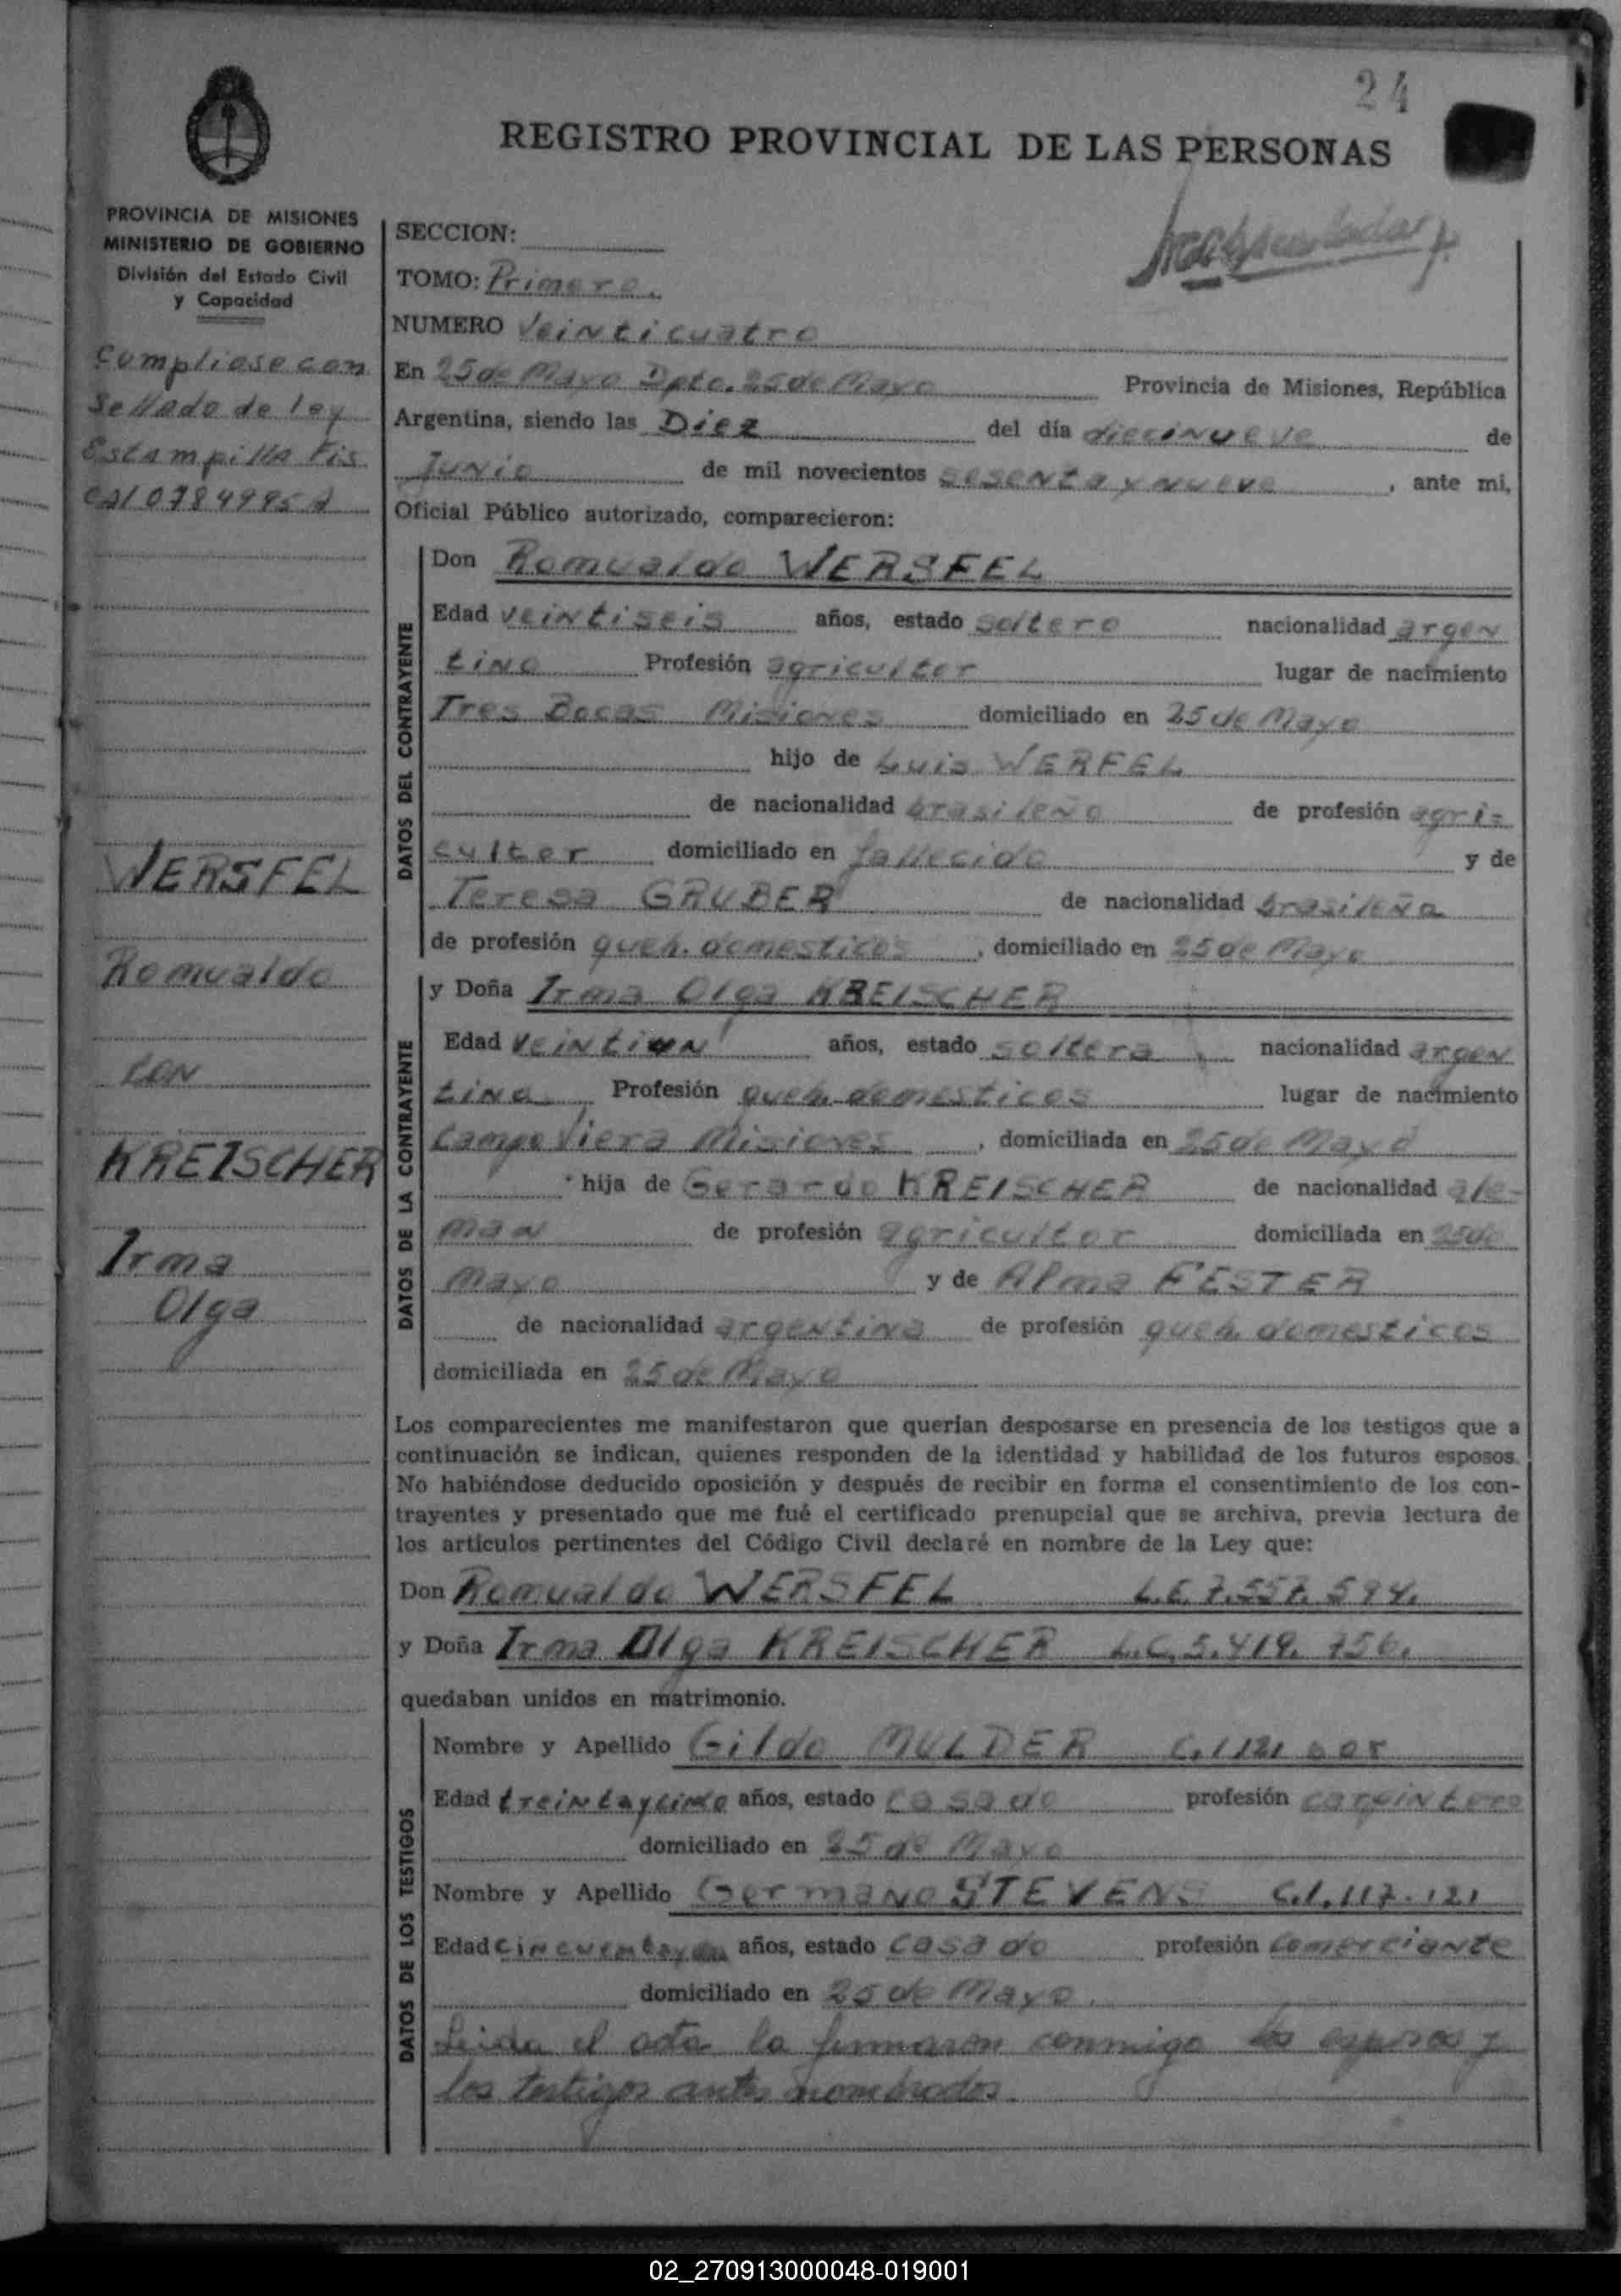 24
REGISTRO PROVINCIAL DE LAS PERSONAS
PROVINCIA DE MISIONES
MINISTERIO DE GOBIERNO
División del Estado Civil
y Capacidad
Cumpliose con
Sellado de ley
Estampilla Fis
cal 0784995 A
WERSFEL
Romualdo
CON
KREISCHER
Irma
Olga
SECCION:
TOMO: Primero.
NUMERO Veinticuatro
En 25 de Mayo Dpto. 25 de Mayo Provincia de Misiones, República
Argentina, siendo las Diez del día diecinueve de
Junio de mil novecientos sesenta y nueve, ante mi,
Oficial Público autorizado, comparecieron:
DATOS DEL CONTRAYENTE
Don Romualdo WERSFEL
Edad veintiseis años, estado soltero nacionalidad argen
tino Profesión agricultor lugar de nacimiento
Tres Bocas Misiones domiciliado en 25 de Mayo
hijo de Luis WERFEL
de nacionalidad brasileño de profesión agri-
cultor domiciliado en fallecido y de
Teresa GRUBER de nacionalidad brasileña
de profesión queh. domesticos, domiciliado en 25 de Mayo
DATOS DE LA CONTRAYENTE
y Doña Irma Olga KREISCHER
Edad veintiun años, estado soltera nacionalidad argen
tina Profesión queh. domesticos lugar de nacimiento
Campo Viera Misiones, domiciliada en 25 de Mayo
hija de Gerardo KREISCHER de nacionalidad ale-
man de profesión agricultor domiciliada en 25 de
Mayo y de Alma FESTER
de nacionalidad argentina de profesión queh. domesticos
domiciliada en 25 de Mayo
Los comparecientes me manifestaron que querían desposarse en presencia de los testigos que a
continuación se indican, quienes responden de la identidad y habilidad de los futuros esposos.
No habiéndose deducido oposición y después de recibir en forma el consentimiento de los con-
trayentes y presentado que me fué el certificado prenupcial que se archiva, previa lectura de
los artículos pertinentes del Código Civil declaré en nombre de la Ley que:
Don Romualdo WERSFEL L.E. 7.557.594.
y Doña Irma Olga KREISCHER L.C. 5.419.756.
quedaban unidos en matrimonio.
DATOS DE LOS TESTIGOS
Nombre y Apellido Gildo MULDER C.I 121
Edad treintaycinco años, estado casado profesión carpintero
domiciliado en 25 de Mayo
Nombre y Apellido Germano STEVENS C.I. 117.121
Edad años, estado casado profesión comerciante
domiciliado en 25 de Mayo.
Leida el acta la firmaron conmigo los esposos y
los testigos antes nombrados.
02_270913000048-019001